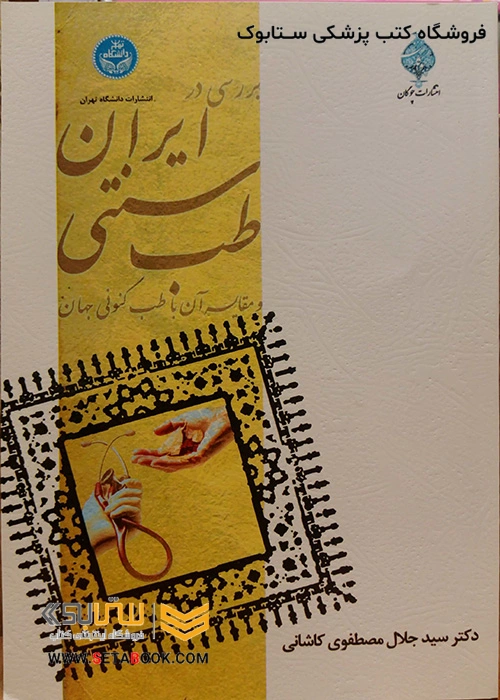 فروشگاه کتب پزشکی ستابوک
دانشگاه
انتشارات دانشگاه تهران
انتشارات چوگان
بررسی در
طب سنتی ایران
و مقایسه آن با طب کنونی جهان
دکتر سید جلال مصطفوی کاشانی
ستابوک
فروشگاه اینترنتی کتاب
WWW.SETABOOK.COM